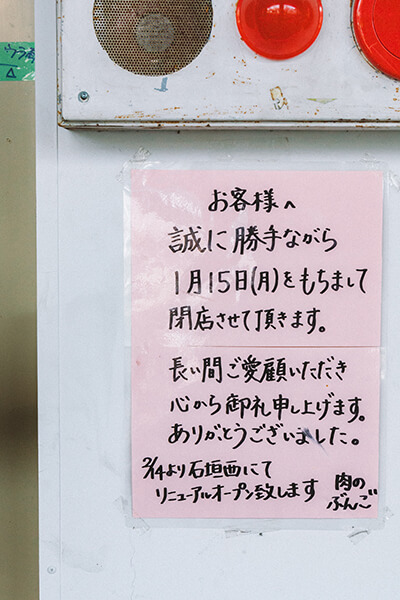 お客様へ
誠に勝手ながら
1月15日(月)をもちまして
閉店させて頂きます。
長い間ご愛顧いただき
心から御礼申し上げます。
ありがとうございました。
2/14より石垣西にて
リニューアルオープン致します
肉の
ぶんご